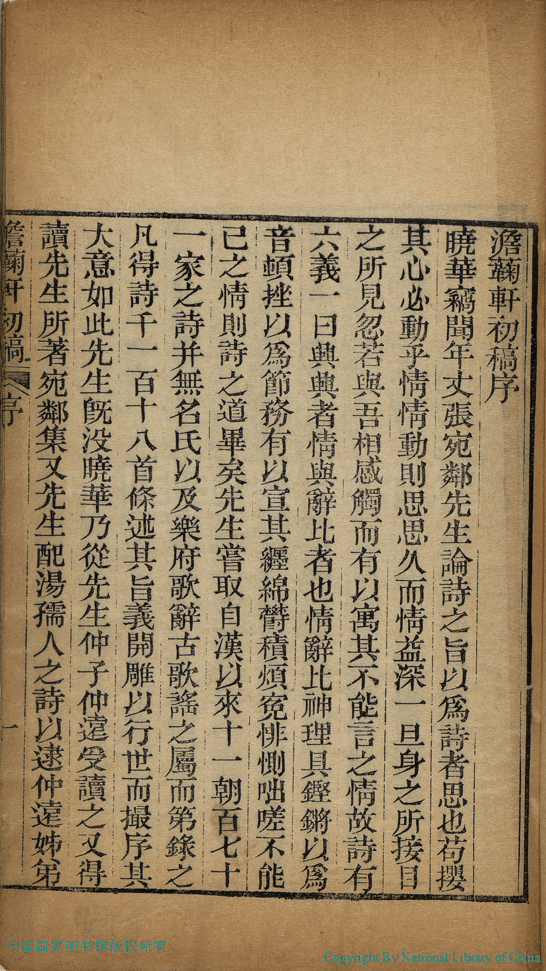 澹蘜軒初稿序
曉華竊聞年丈張宛鄰先生論詩之旨以爲詩者思也苟攖
其心必動乎情情動則思思久而情益深一旦身之所接目
之所見忽若與吾相感觸而有以寓其不能言之情故詩有
六義一曰興興者情與辭比者也情辭比神理具鏗鏘以爲
音頓挫以爲節務有以宣其纒綿欎積煩寃悱惻咄嗟不能
已之情則詩之道畢矣先生嘗取自漢以來十一朝百七十
一家之詩并無名氏以及樂府歌辭古歌謠之屬而第錄之
凡得詩千一百十八首條述其旨義開雕以行世而撮序其
大意如此先生旣没曉華乃從先生仲子仲遠受讀之又得
讀先生所著宛鄰集又先生配湯孺人之詩以逮仲遠姊弟
澹蘜軒初稿 序 一
中國國家图书馆版权所有
Copyright By National Library of China